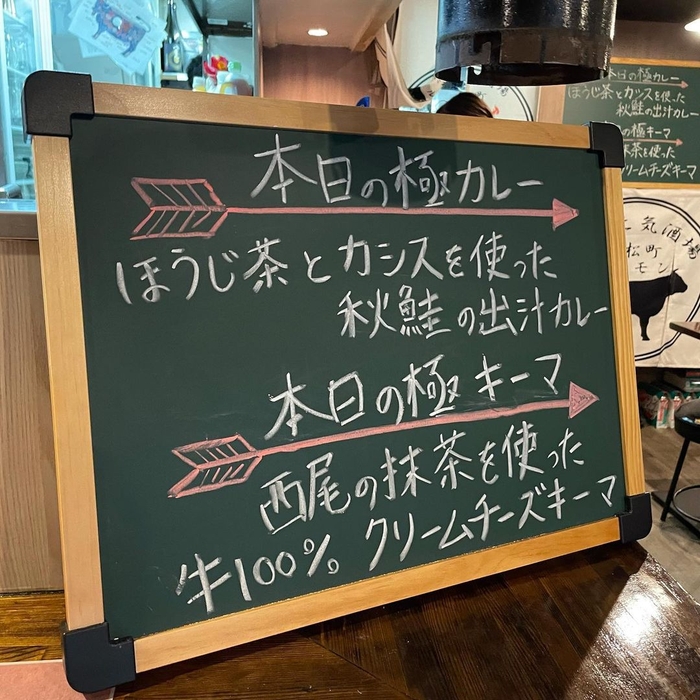 本日の極カレー
ほうじ茶とカシスを使った
秋鮭の出汁カレー
本日の極キーマ
西尾の抹茶を使った
牛100% クリームチーズキーマ
本日の極カレー
ほうじ茶とカシスを使った
秋鮭の出汁カレー
の極キーマ
抹茶を使った
クリームチーズキーマ
気酒場
松町
モン